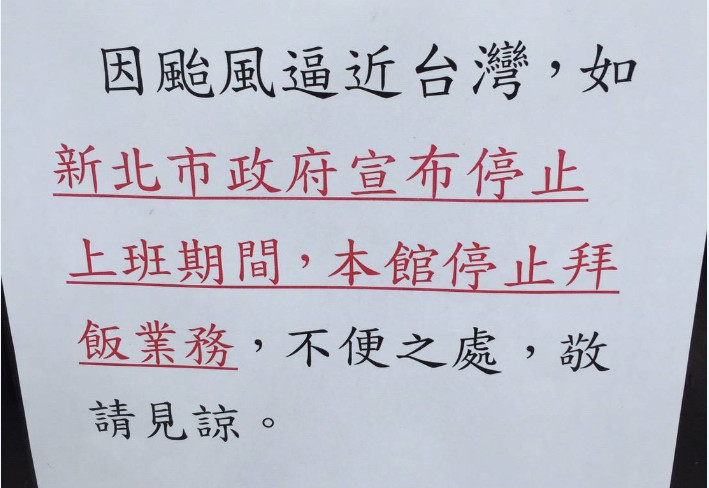 因颱風逼近台灣，如
新北市政府宣布停止
上班期間，本館停止拜
飯業務，不便之處，敬
請見諒。